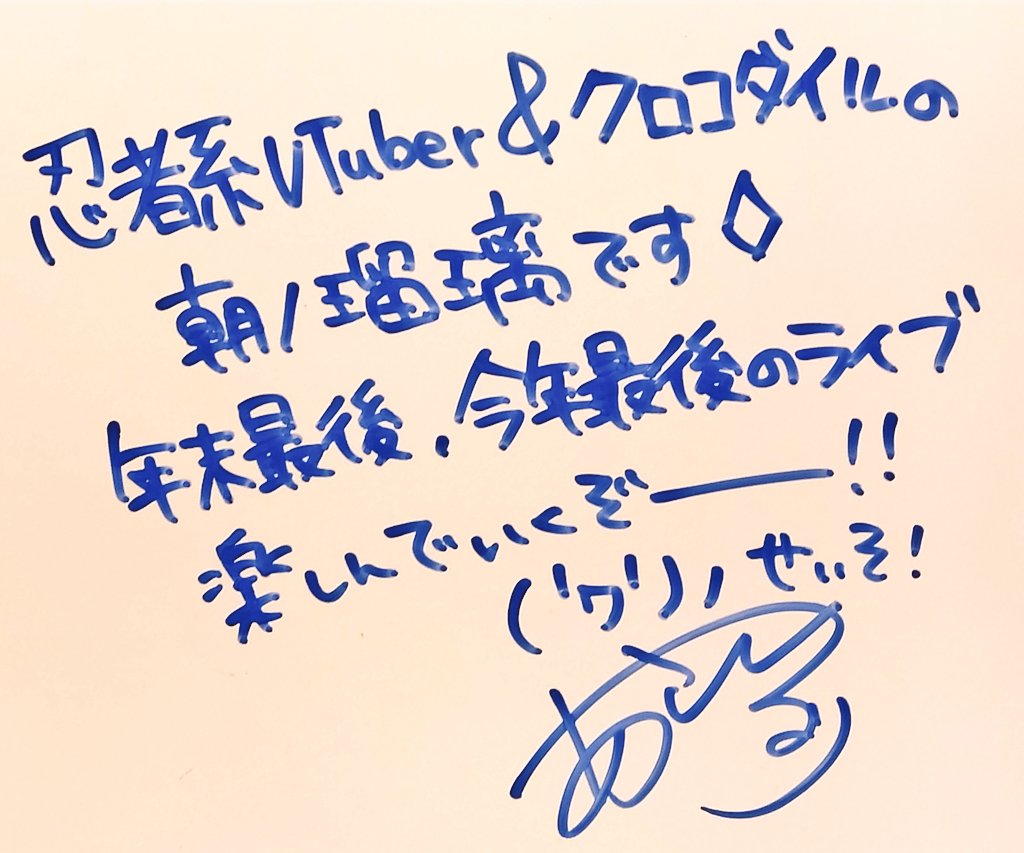 忍者系VTuber&クロコダイルの
朝ノ瑠璃です◇
年末最後、今年最後のライブ
楽しんでいくぞー!!
('ワ')ノ せいそ!